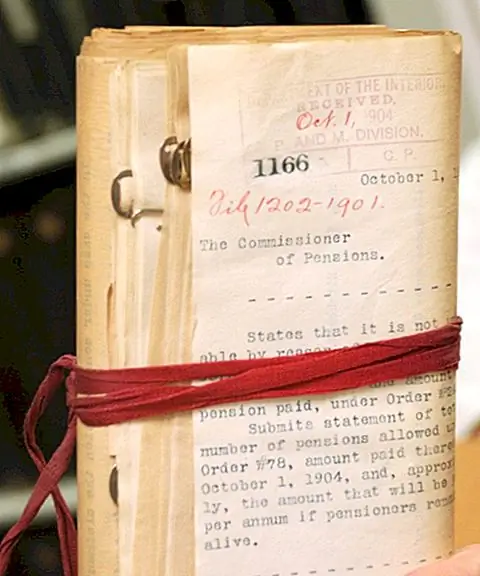 DEPARTMENT OF THE INTERIOR
RECEIVED,
Oct. 1, 1904
P. AND M. DIVISION.
1166 C. P.
October 1, 1
File 1202-1901.
The Commissioner
of Pensions.
- - - - - - - - - - - - -
States that it is not
able by reason of
and amount
pension paid, under Order #
Submits statement of
number of pensions allowed
Order #78, amount paid there
October 1, 1904, and, approx
ly, the amount that will be
per annum if pensioners rem
alive.
- - - - - - - - - - - - -